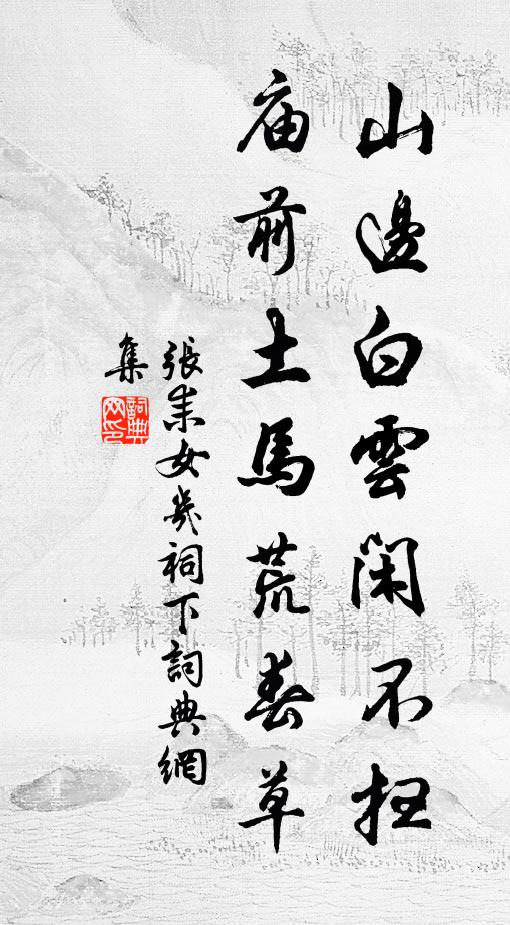 山邊白雲閑不扫
庙前土馬荒春草
張耒女几祠下詞典網
集
詞典
网印